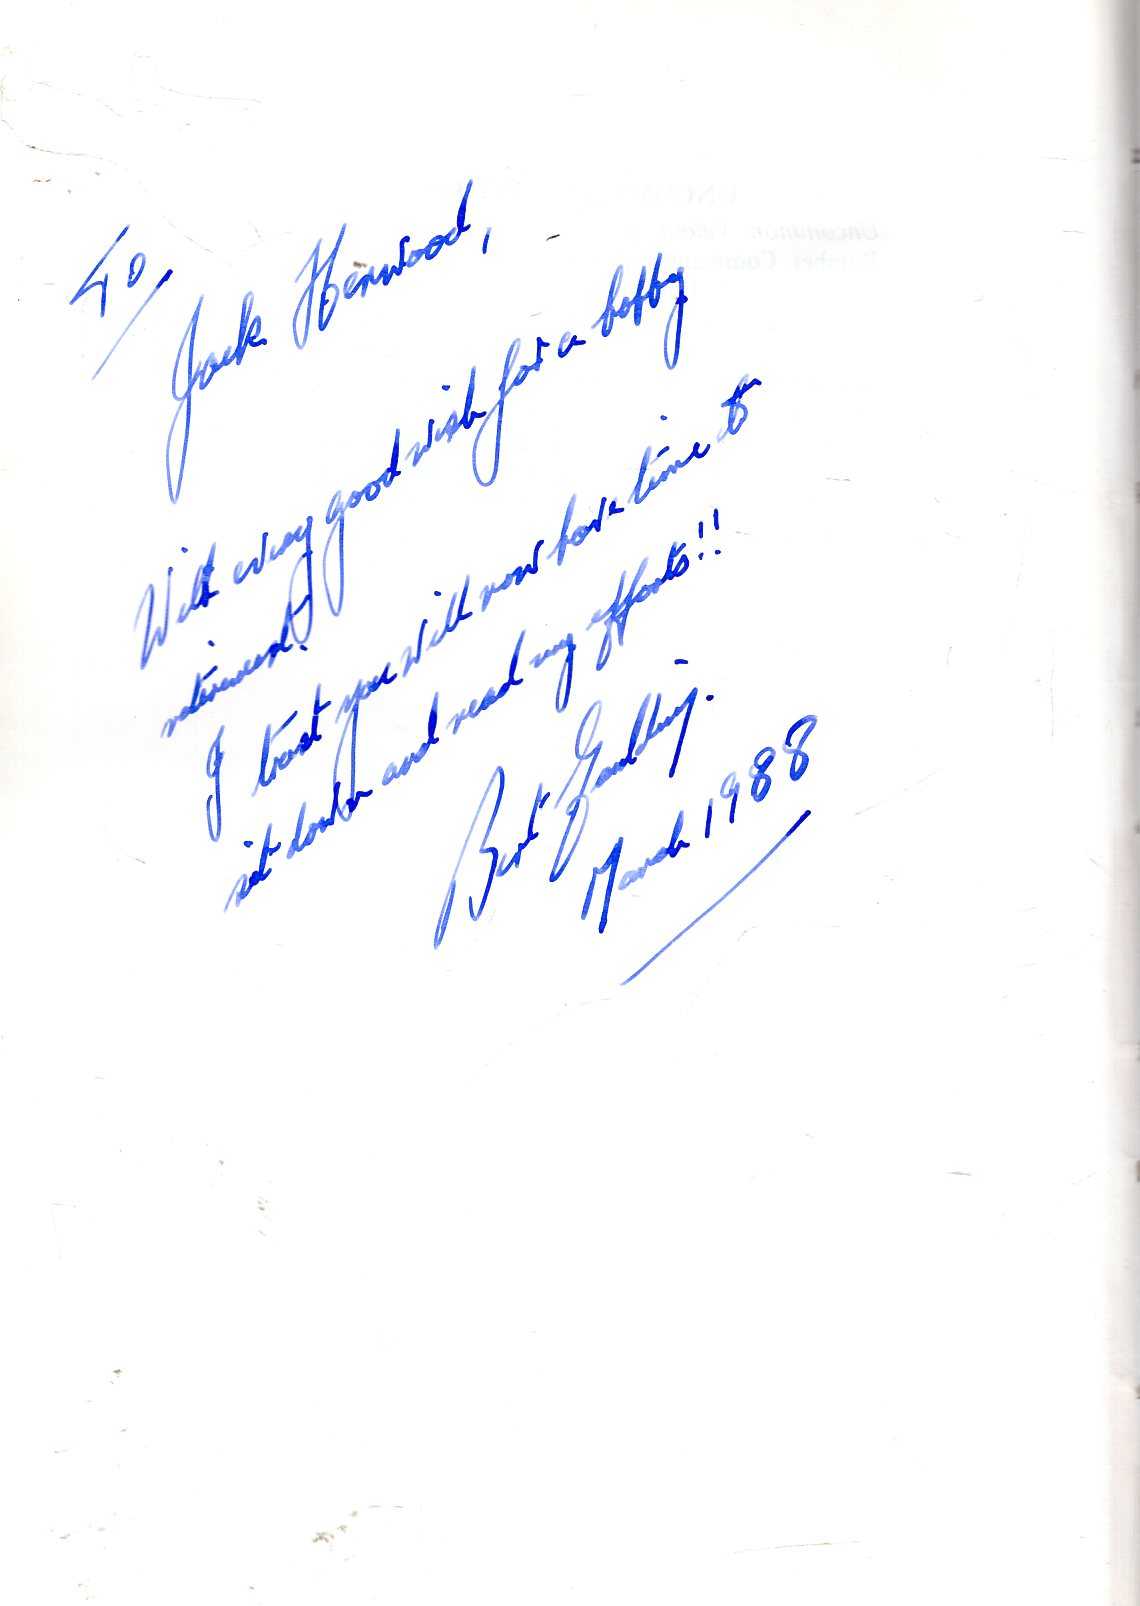 To
Jack Henwood,
With every good wish for a happy
retirement.
I trust you will now have time to
sit down and read my efforts!!
Bert
March 1988